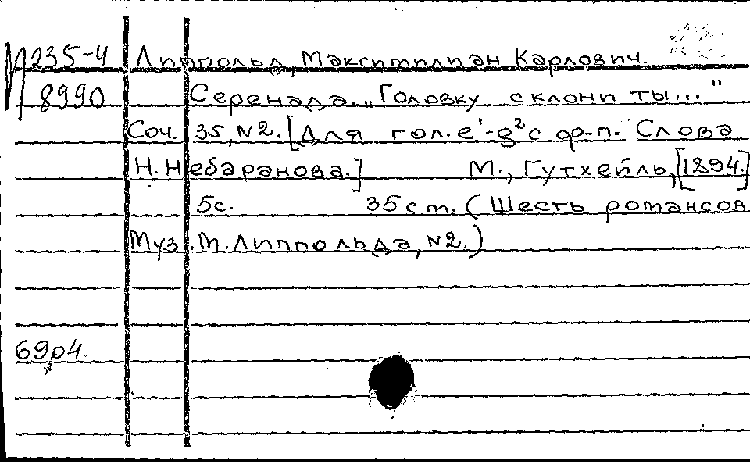 235-4 Липпольд, Максимилиан Карлович.
8990 Серенада. „Головку склони ты..."
Соч. 35, №2. [Для гол. e¹-g² с ф-п. Слова
Н. Небаранова.] М., Гутхейль, [1894.]
5с. 35 см. (Шесть романсов
Муз. М. Липпольда, №2.)
69р4.